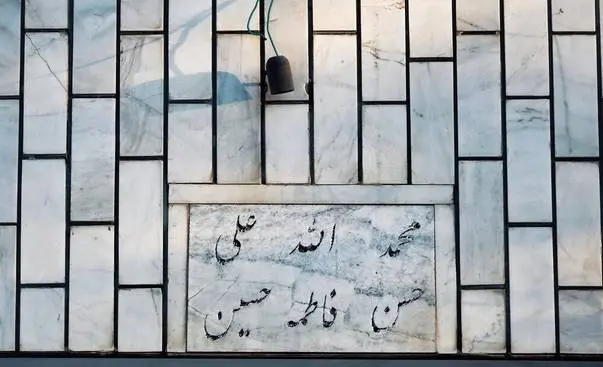 محمد الله علی
حسن فاطمه حسین